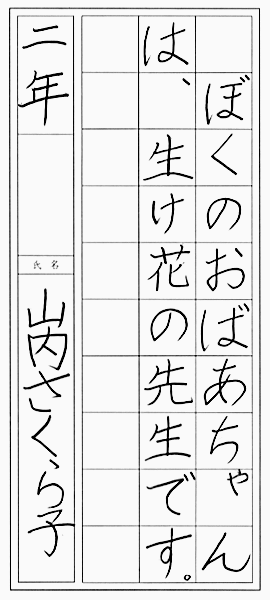 ぼくのおばあちゃん
は、生け花の先生です。
二年
氏名
山内さくら子